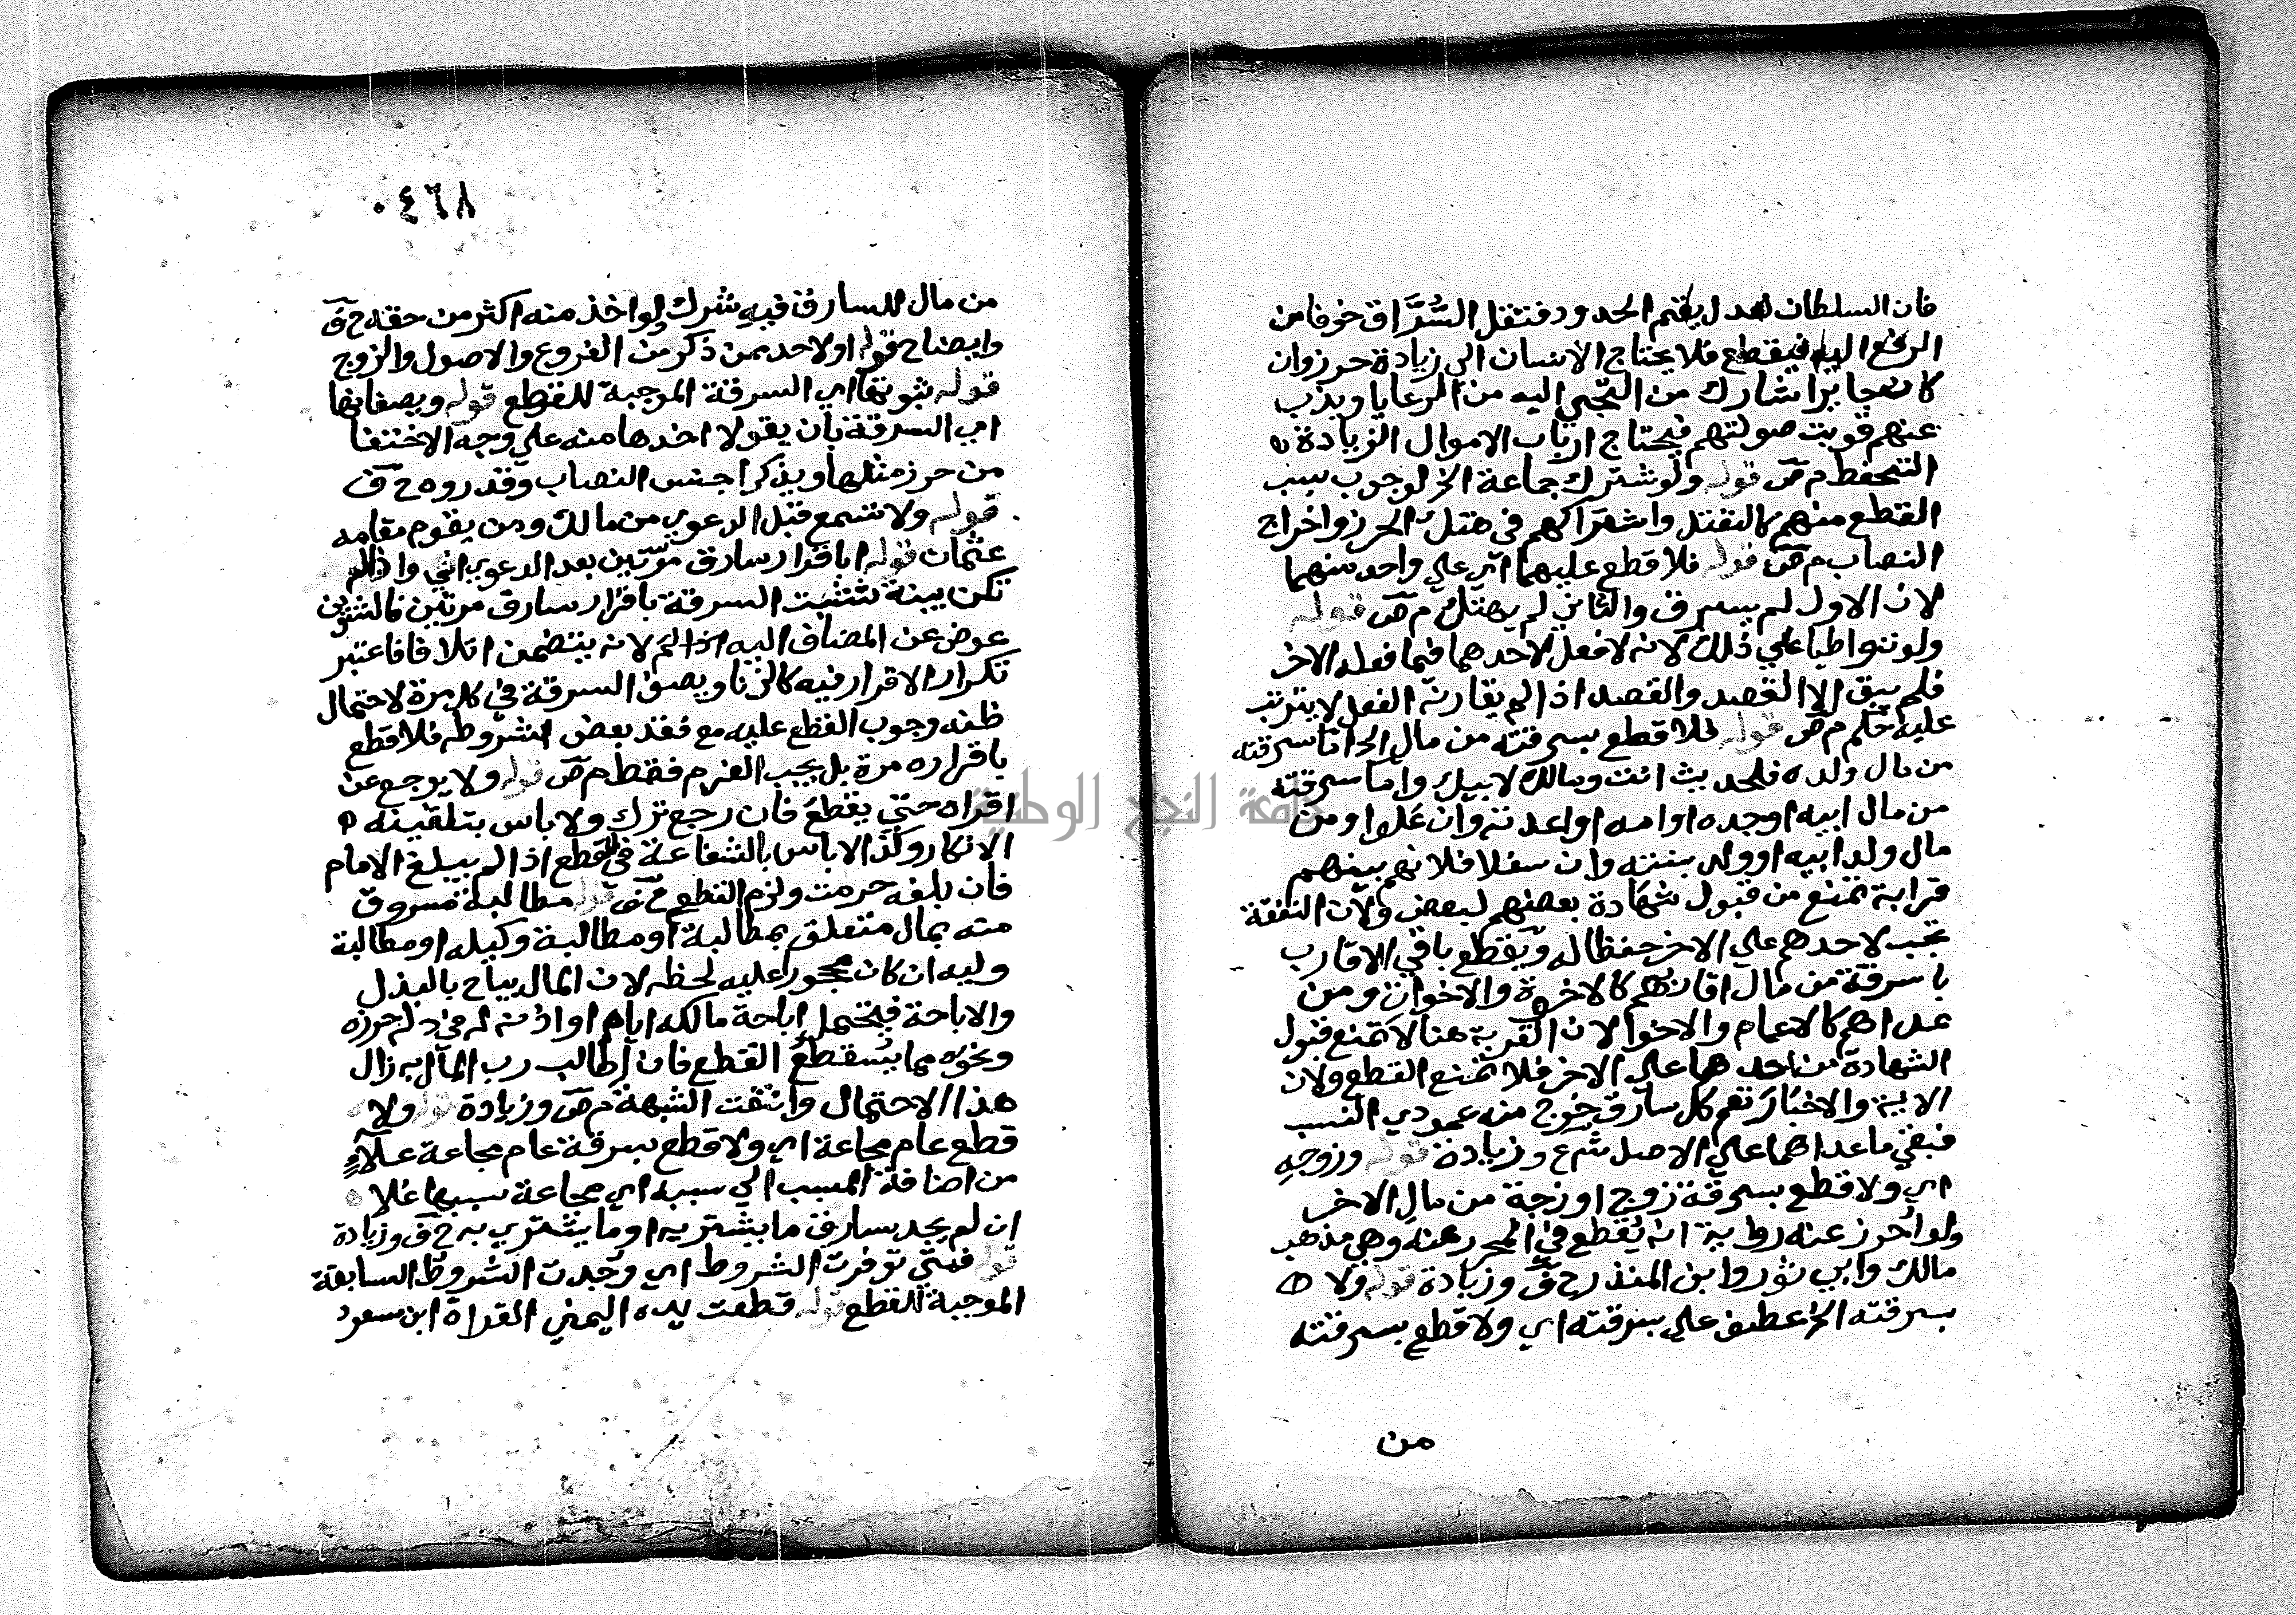 فان السلطان لعدل يقيم الحدود فتقل السُّرَّاق خوفا من
الرفع اليه فيقطع فلا يحتاج الانسان الي زيادة حرز وان
كان جايرا شارك من التجي اليه من الرعايا ويذب
عنهم قويت صولتهم فيحتاج ارباب الاموال الزيادة
التحفظ م ص قوله ولو شترك جماعة الخ لوجوب سبب
القطع منهم كالقتل واشتراكهم في هتك الحرز واخراج
النصاب م ص قوله فلا قطع عليهما اي علي واحد منهما
لان الاول لم يسرق والثاني لم يهتك م ص قوله
ولو تواطيا علي ذلك لانه لا فعل لاحدهما فيما فعله الاخر
فلم يبق الا القصد والقصد اذا لم يقارنه الفعل لا يترتب
عليه حكم م ص قوله فلا قطع بسرقته من مال الخ اما سرقته
من مال ولده فلحديث انت ومالك لابيك واما سرقته
من مال ابيه او جده او امه او اعدته وان علوا ومن
مال ولد ابيه او ولد بنته وان سفلا فلانهم بينهم
قرابة تمنع من قبول شهادة بعضهم لبعض ولان النفقة
تجب لاحدهم علي الاخر حفظا له ويقطع باقي الاقارب
باسرقة من مال اقاربهم كالاخوة والاخوان ومن
عداهم كالاعمام والاخوا لان القربة هنا لا تمنع قبول
الشهادة من احدهما علي الاخر فلا تمنع القطع ولان
الاية والاخبار تعم كل سارق خرج منه عمودي النسب
فبقي ما عداهما علي الاصل شرع وزيادة قوله وزوجه
اي ولا قطع بسرقة زوج او زجة من مال الاخر
ولو احرز عنه رواية انه يُقطع في المحرز عنه وهي مذهب
مالك وابي ثور وابن المنذر ح ق وزيادة قوله ولا
بسرقته الخ عطف علي بسرقته اي ولا قطع بسرقته
من
٠٤٦٨
من مال للسارق فيه شرك لو اخذ منه اكثر من حقه ح ق
وايضاح قوله او لاحد ممن ذكر من الفروع والاصول والزوج
قوله ثبوتها اي السرقة الموجبة للقطع قوله ويصفانها
اي السرقة بان يقولا اخدها منه علي وجه الاختفا
من حرز مثلها ويذكرا جنس النصاب وقدروه ح ق
قوله ولا تسمع قبل الدعوي من مالك ومن يقوم مقامه
عثمان قوله او باقرار سارق مرتين بعد الدعوي اي واذا لم
تكن بينة تثبت السرقة باقرار سارق مرتين فالتنوين
عوض عن المضاف اليه اذا لم لانه يتضمن اتلافا فاعتبر
تكرار الاقرار فيه كالزنا ويصف السرقة في كل مرة لاحتمال
ظنه وجوب القطع عليه مع فقد بعض الشروط فلا قطع
باقراره مرة بل يجب الغرم فقط م ص قوله ولا يرجع عن
اقراه حتي يقطع فان رجع ترك ولا باس بتلقينه
الانكار وكذا لاباس بالشفاعة في القطع اذا لم يبلغ الامام
فان بلغه حرمت ولزم القطع ح ق قوله مطالبة مسروق
منه بمال متعلق بمطالبة او مطالبة وكيله او مطالبة
وليه ان كان محجورا عليه لحظه لان المال يباح بالبذل
والاباحة فيحتمل اباحة مالكه اياه او اذنه له في دخل حرزه
ونحوه مما يُسقطع القطع فان طالب رب المال به زال
هذا الاحتمال وانتفت الشبهة م ص وزيادة قوله ولا
قطع عام مجاعة اي ولا قطع بسرقة عام مجاعة غلاءٍ
من اضافة المسبب الي سببه اي مجاعة سببها غلا
ان لم يجد سارق ما يشتريه او ما يشتري به ح ق وزيادة
قوله فمتي توفرت الشروط اي وجدت الشروط السابقة
الموجبة للقطع قوله قطعت يده اليمني القراة ابن سعود
جامعة النجاح الوطنية